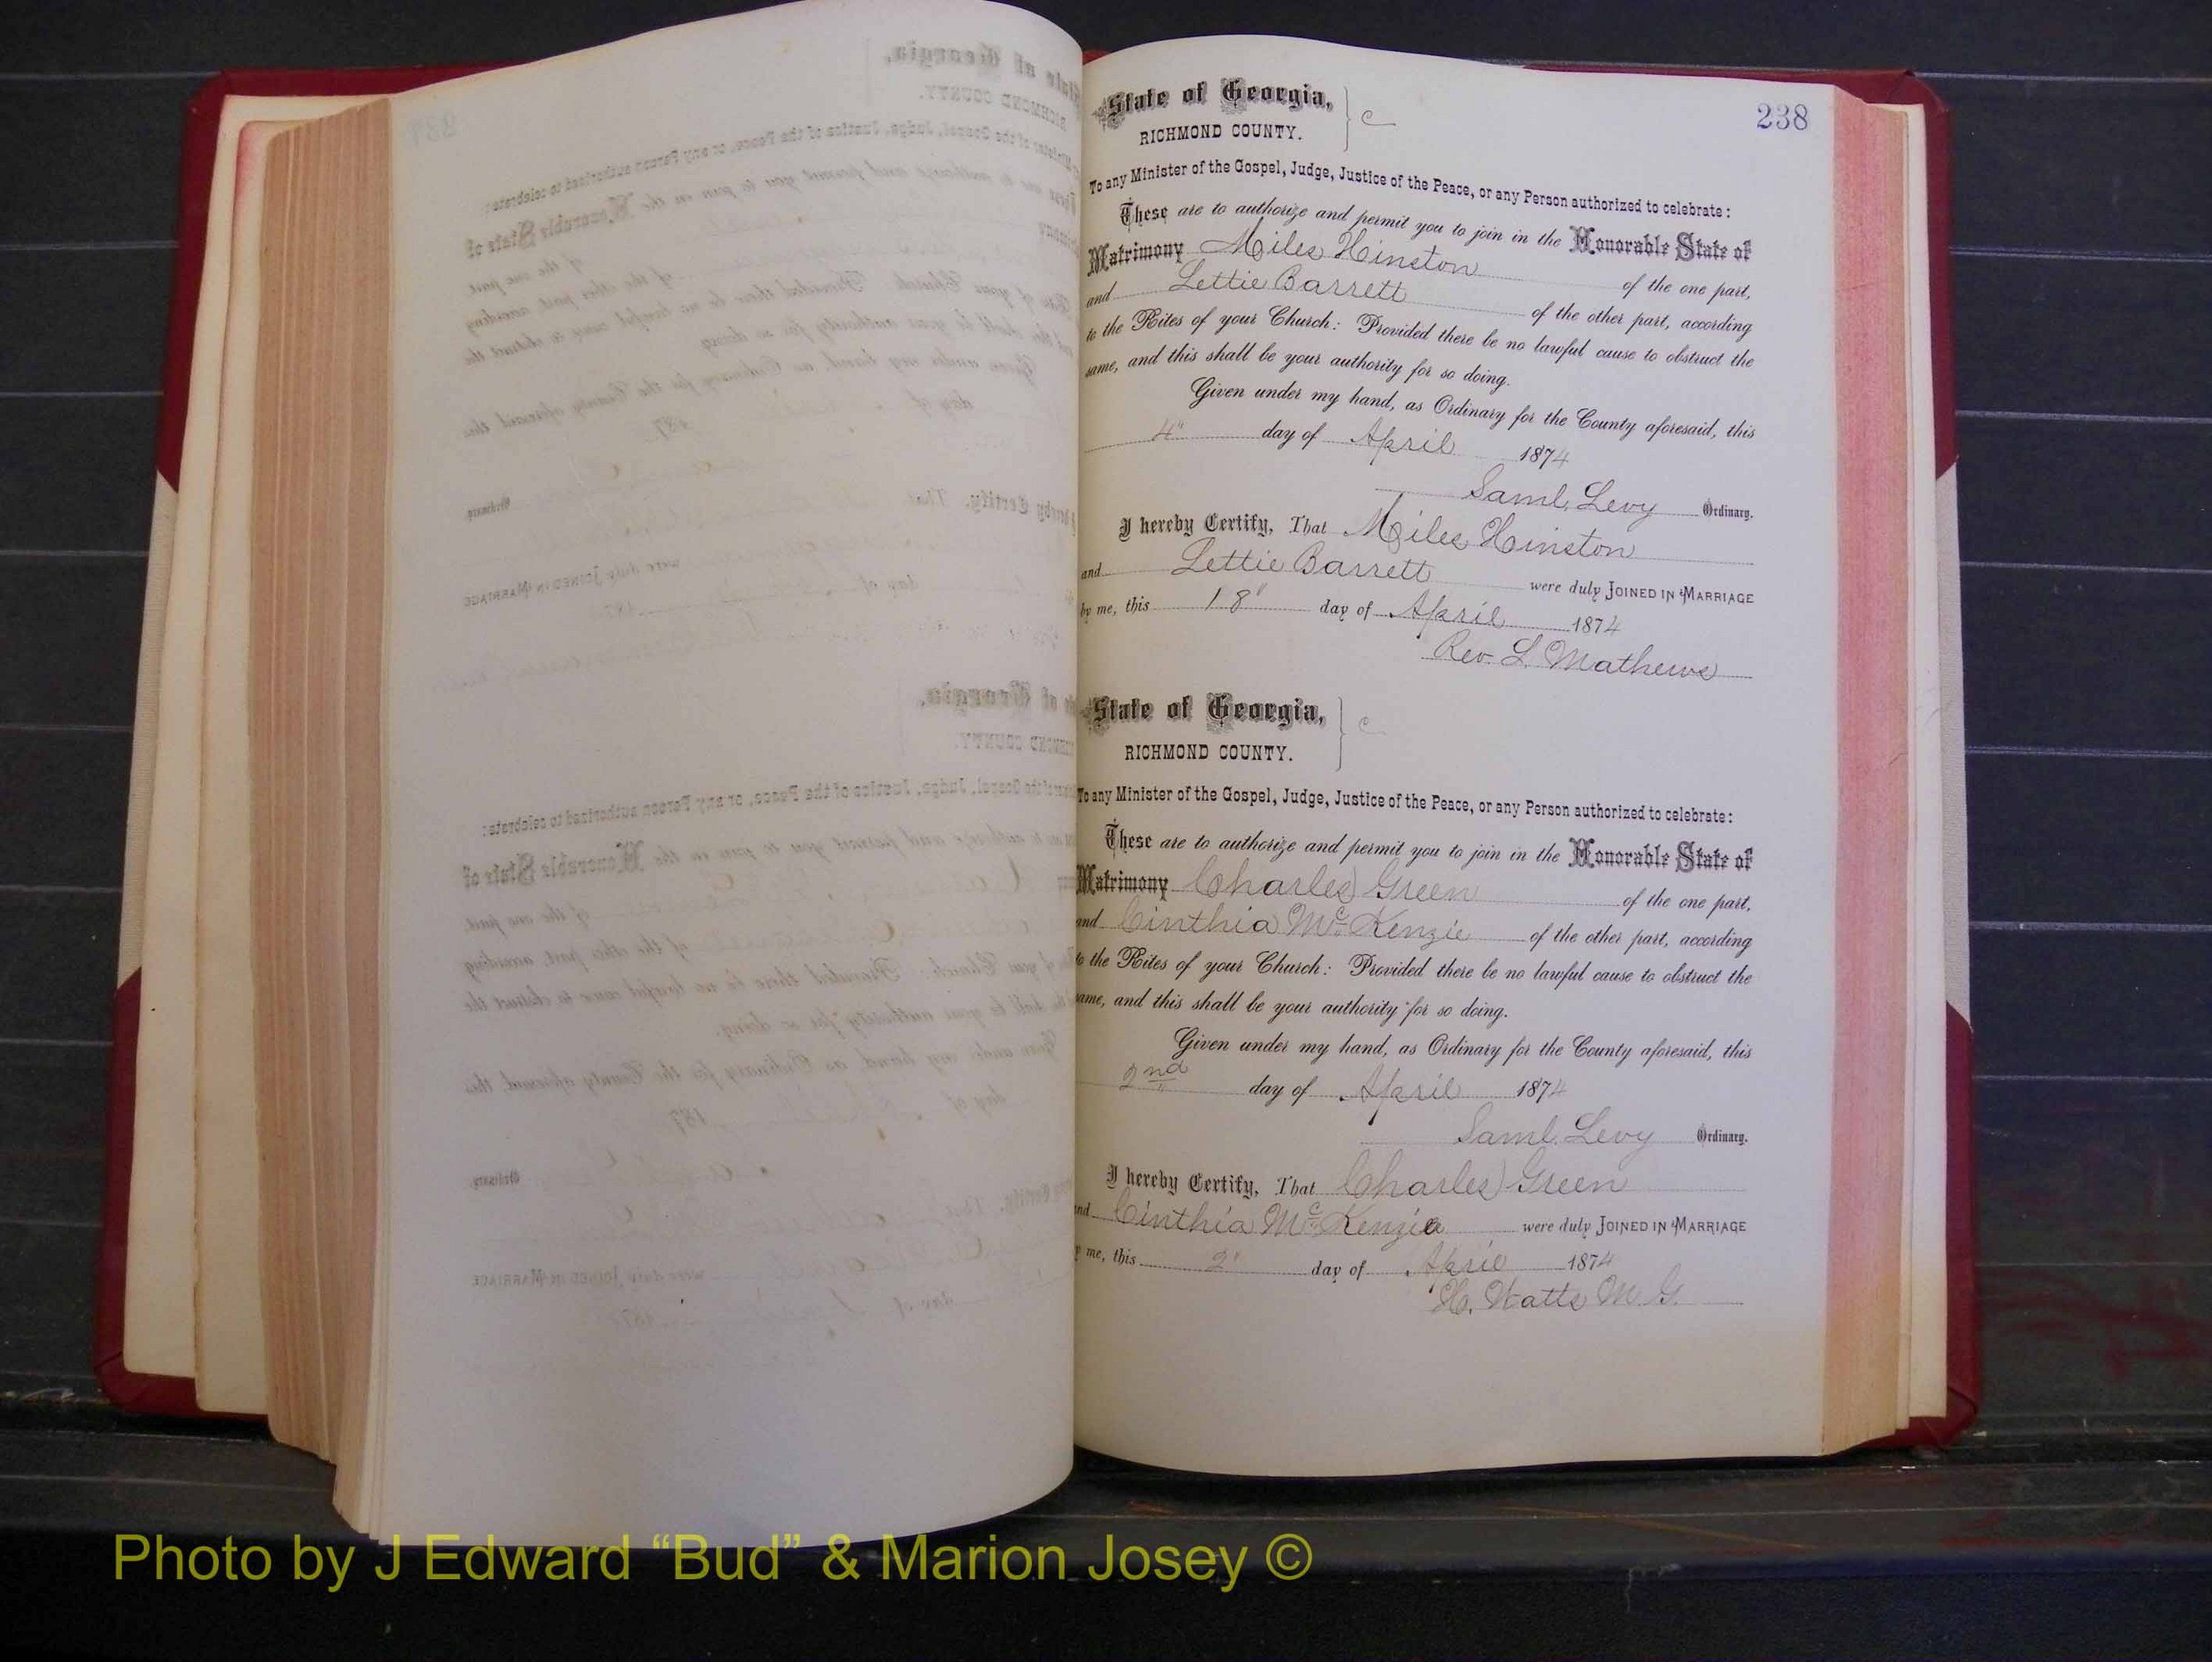 238
State of Georgia, } c
RICHMOND COUNTY.
To any Minister of the Gospel, Judge, Justice of the Peace, or any Person authorized to celebrate:
These are to authorize and permit you to join in the Honorable State of
Matrimony Miles Hinston of the one part,
and Lettie Barrett of the other part, according
to the Rites of your Church: Provided there be no lawful cause to obstruct the
same, and this shall be your authority for so doing.
Given under my hand, as Ordinary for the County aforesaid, this
4" day of April 1874
Saml. Levy Ordinary.
I hereby Certify, That Miles Hinston
and Lettie Barrett were duly JOINED IN MARRIAGE
by me, this 18" day of April 1874
Rev. L. Mathews
State of Georgia, } c
RICHMOND COUNTY.
To any Minister of the Gospel, Judge, Justice of the Peace, or any Person authorized to celebrate:
These are to authorize and permit you to join in the Honorable State of
Matrimony Charles Green of the one part,
and Cinthia McKenzie of the other part, according
to the Rites of your Church: Provided there be no lawful cause to obstruct the
same, and this shall be your authority for so doing.
Given under my hand, as Ordinary for the County aforesaid, this
2nd day of April 1874
Saml. Levy Ordinary.
I hereby Certify, That Charles Green
and Cinthia McKenzie were duly JOINED IN MARRIAGE
by me, this 2" day of April 1874
H. Watts M. G.
Photo by J Edward “Bud” & Marion Josey ©